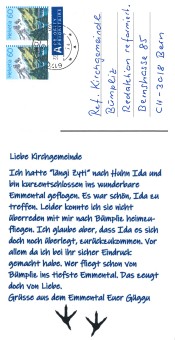 HELVETIA 60
HELVETIA 60
A
Ref. Kirchgemeinde
Bümpliz
Redaktion reformiert.
Bernstrasse 85
CH-3018 Bern
Liebe Kirchgemeinde
Ich hatte "längi Zyti" nach Huhn Ida und
bin kurzentschlossen ins wunderbare
Emmental geflogen. Es war schön, Ida zu
treffen. Leider konnte ich sie nicht
überreden mit mir nach Bümpliz heimzu-
fliegen. Ich glaube aber, dass Ida es sich
doch noch überlegt, zurückzukommen. Vor
allem da ich bei ihr sicher Eindruck
gemacht habe. Wer fliegt schon von
Bümpliz ins tiefste Emmental. Das zeugt
doch von Liebe.
Grüsse aus dem Emmental Euer Güggu